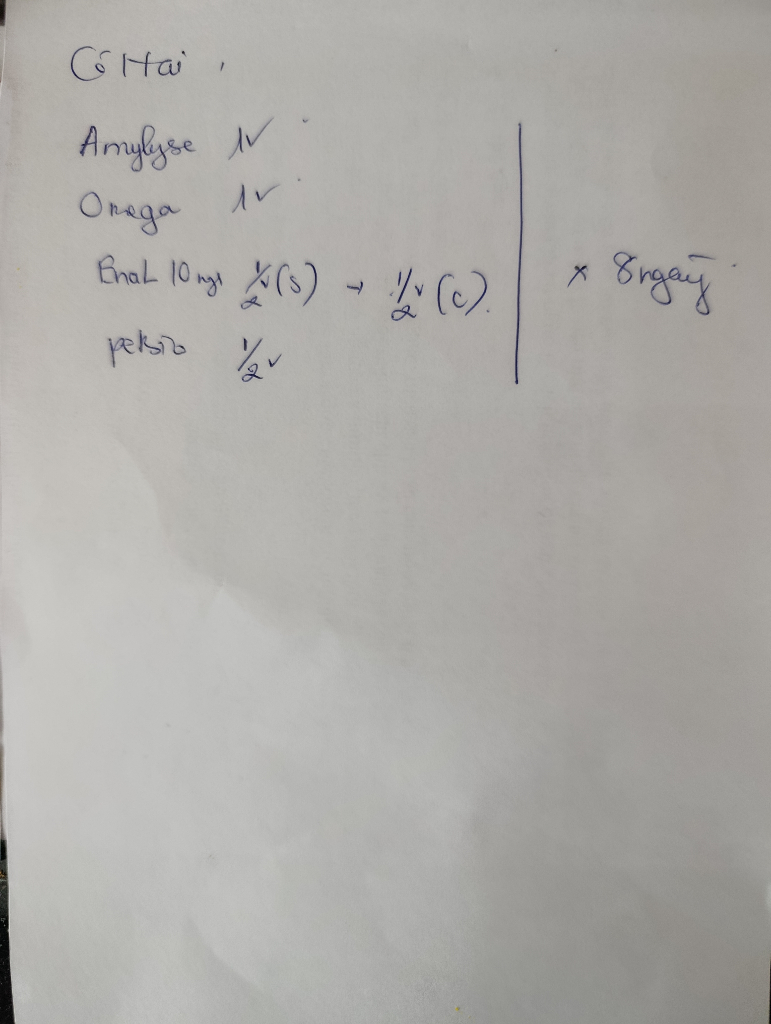 Cô Hai
Amylyse 1v
Omega 1v
Enal 10mg 1/2v (s) → 1/2v (c)
1/2v
x 8 ngày